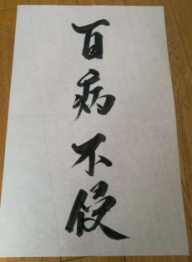 百病不侵